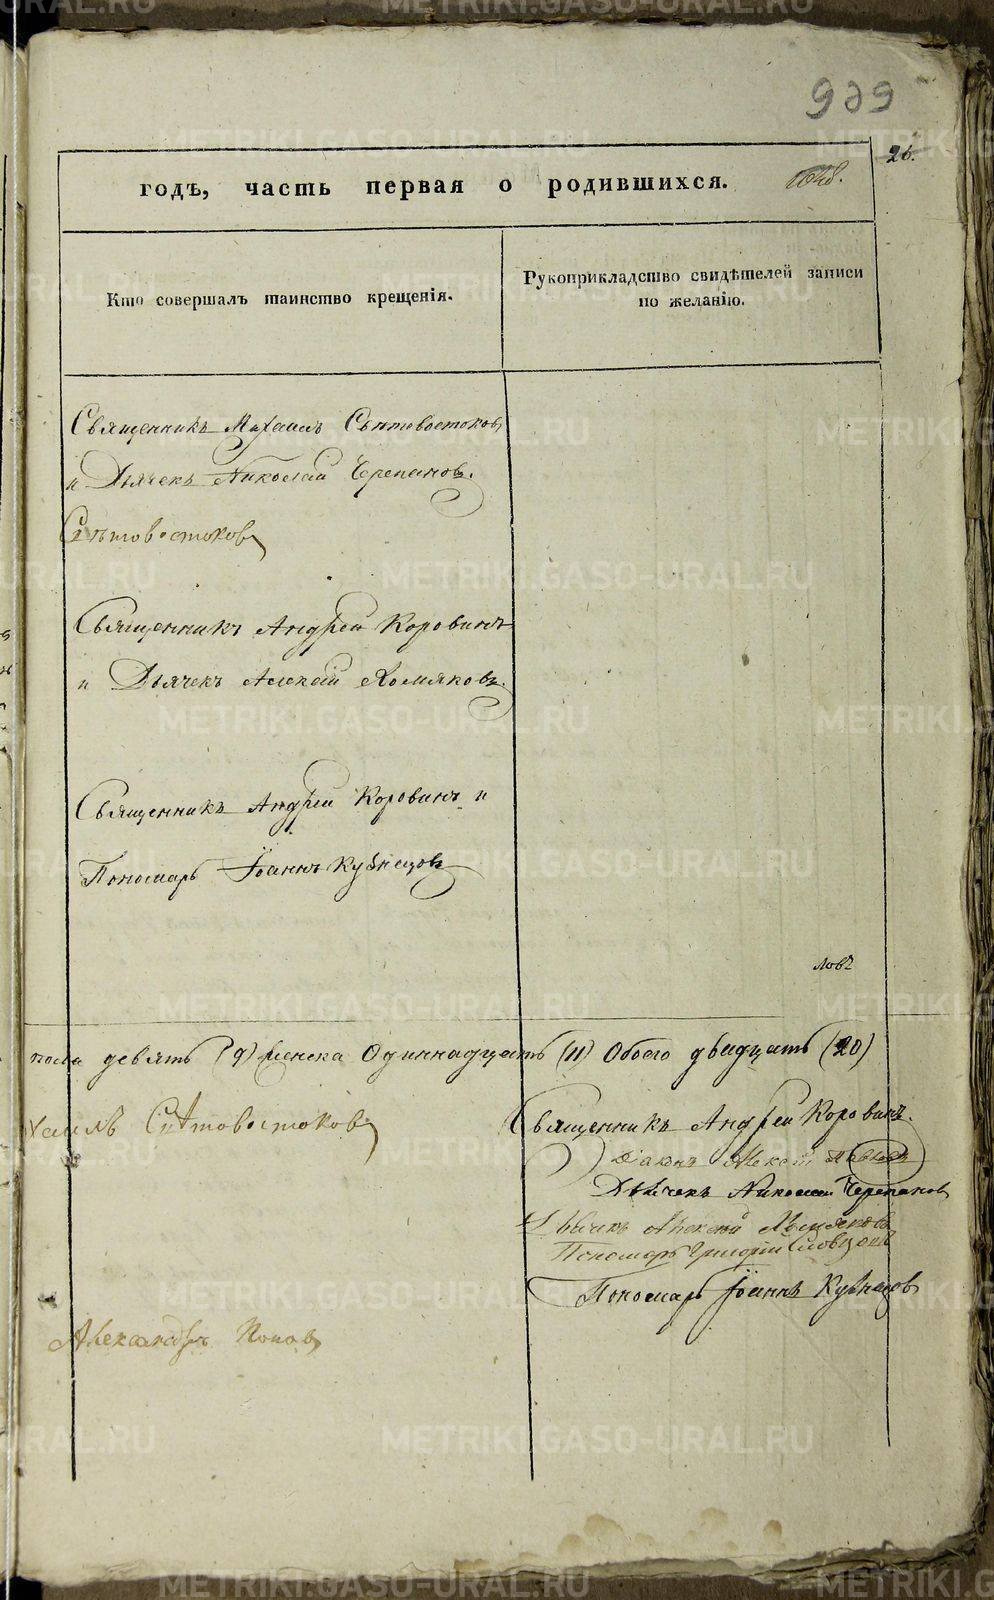 939
26.
годъ, часть первая о родившихся.
Кто совершалъ таинство крещенія.
Рукоприкладство свидѣтелей записи
по желанію.
Священникъ Михаилъ Свѣтовостоковъ
и Дьячекъ Николай Черепановъ.
Свѣтовостоковъ
Священникъ Андрей Коровинъ
и Дьячекъ Алексѣй Хомяковъ.
Священникъ Андрей Коровинъ и
Пономарь Іоаннъ Кузнецовъ
ловъ
пола девять (9) Женска Одиннадцать (11) Обоего двадцать (20)
хаилъ Свѣтовостоковъ
Священникъ Андрей Коровинъ.
Діаконъ Алексѣй
Дьячекъ Николай Черепановъ
Дьячекъ Алексѣй Хомяковъ
Пономарь Григорій Словцовъ
Пономарь Іоаннъ Кузнецовъ
Александръ Поповъ
METRIKI.GASO-URAL.RU